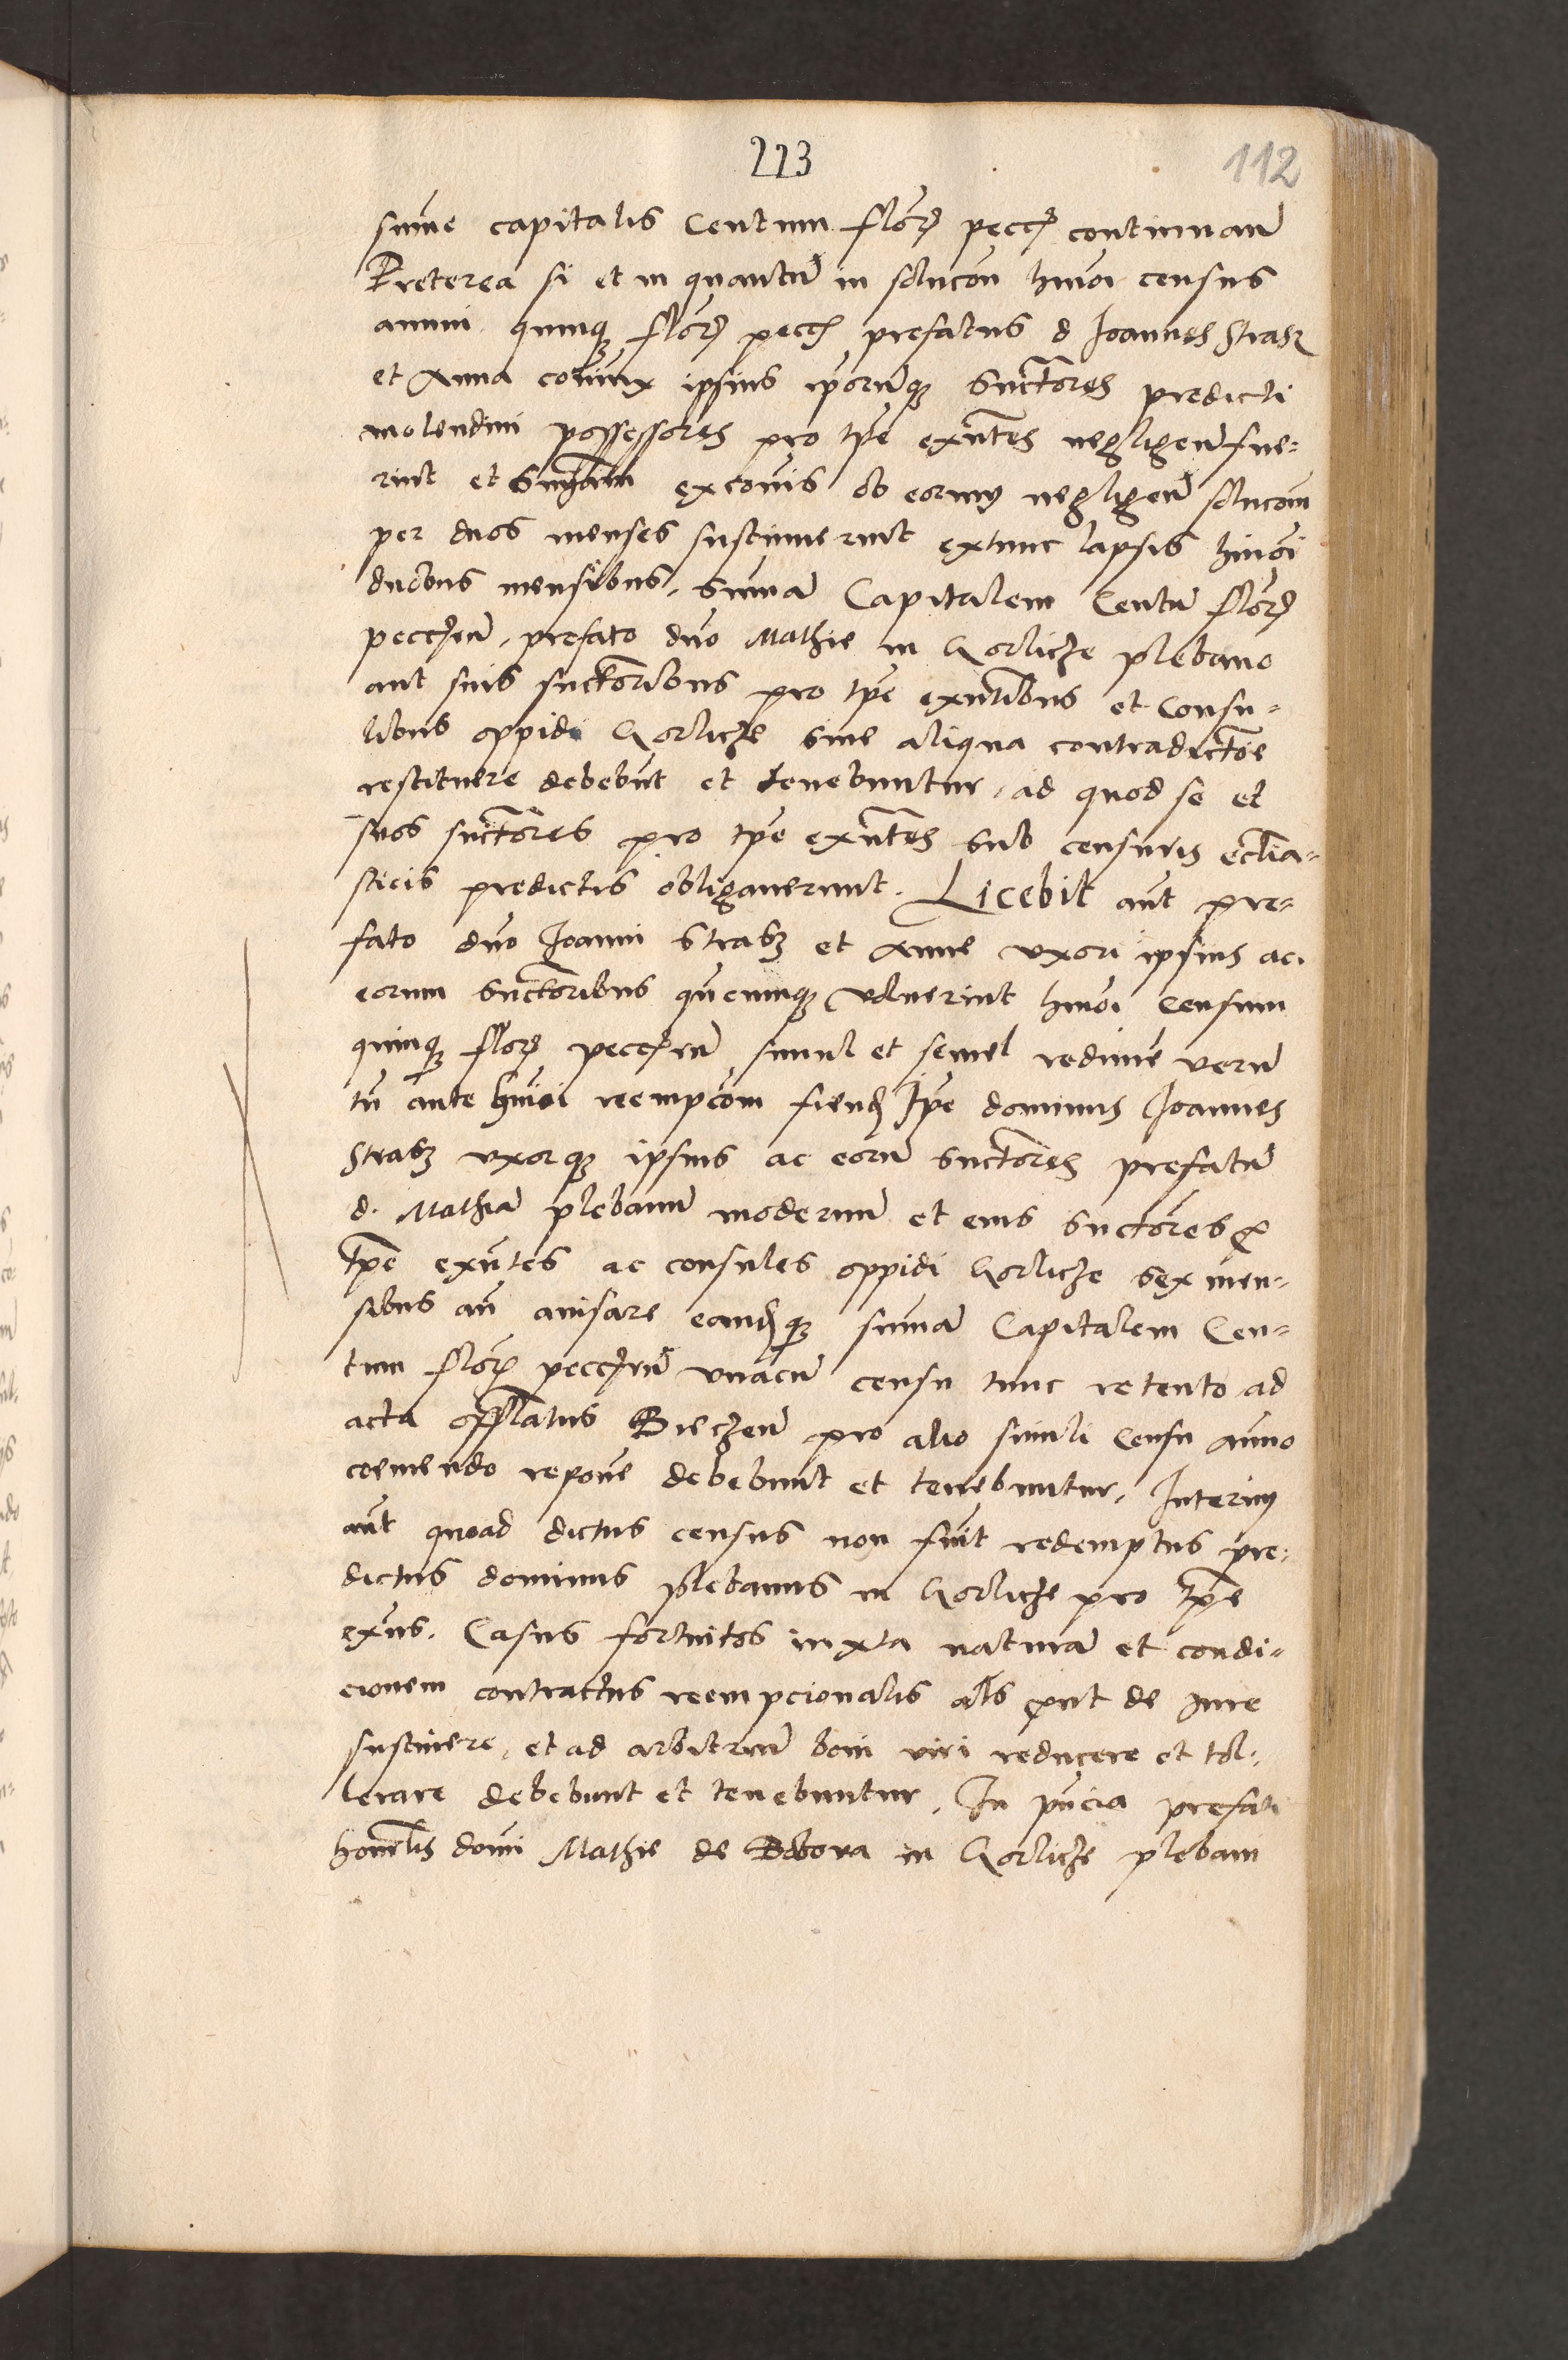 223
112
sum̄e capitalis Centum flor̄ pecc̄ continuan̄
Preterea si et in quantū in soluc̄on hmōi census
annui quinqꝫ flor̄ pecc̄ prefatus d Joannes Strasz
et Anna coniunx ipsius ip̄orumqꝫ Succ̄tores predicti
molendini possessores pro tp̄e exn̄tes negligen̄ fue-
rint et snīam excōnis ob eorum negligen̄ soluc̄om
per duos menses sustinuerint extunc lapsis hmōi
duobus mensibus, summā Capitalem Centū flor̄
pecczen̄, prefato dn̄o Mathie in Gorlicze plebano
aut suis succ̄toribus pro tp̄e exn̄tibus et Consu-
libus oppidi Gorlicze sine aliqua contradictōe
restituere debebūt et tenebuntur, ad quod se et
suos succ̄tores pro tp̄e exn̄tes sub censuris ecclīa-
sticis predictis obligauerunt. Licebit aūt pre-
fato dn̄o Joanni Strasz et Anne vxori ipsius ac
eorum succ̄toribus qn̄cunqꝫ voluerint hmōi Censum
quinqꝫ flor̄ peccz̄rū simul et semel redime verū
tn̄ ante hmōi reempc̄om fiend̄ Ip̄e dominus Joannes
Strasz vxorqꝫ ipsius ac eorū succ̄tores prefatū
d. Mathiā plebanū modernū et eius succ̄tores ꝓ
tp̄e exn̄tes ac consules oppidi Gorlicze sex men-
sibus an̄ auisare eand̄qꝫ summā Capitalem Cen-
tum flor̄ peccz̄rū vnacū censu tunc retento ad
acta offīlatus Bieczen̄ pro alio simili Censu annuo
coemendo repone debebunt et tenebuntur, Interim
aūt quoad dictus census non fūit redemptus pre-
dictus dominus plebanus in Gorlicze pro tp̄e
exn̄s. Casus fortuitos iuxta naturā et condi-
cionem contractus reempcionalis al̄s ꝓut de iure
sustinere, et ad arbitriū boni viri reducere et tol-
lerare debebunt et tenebuntur, In pn̄cia prefati
honorlis dom̄i Mathie de Bobova in Gorlicze plebani